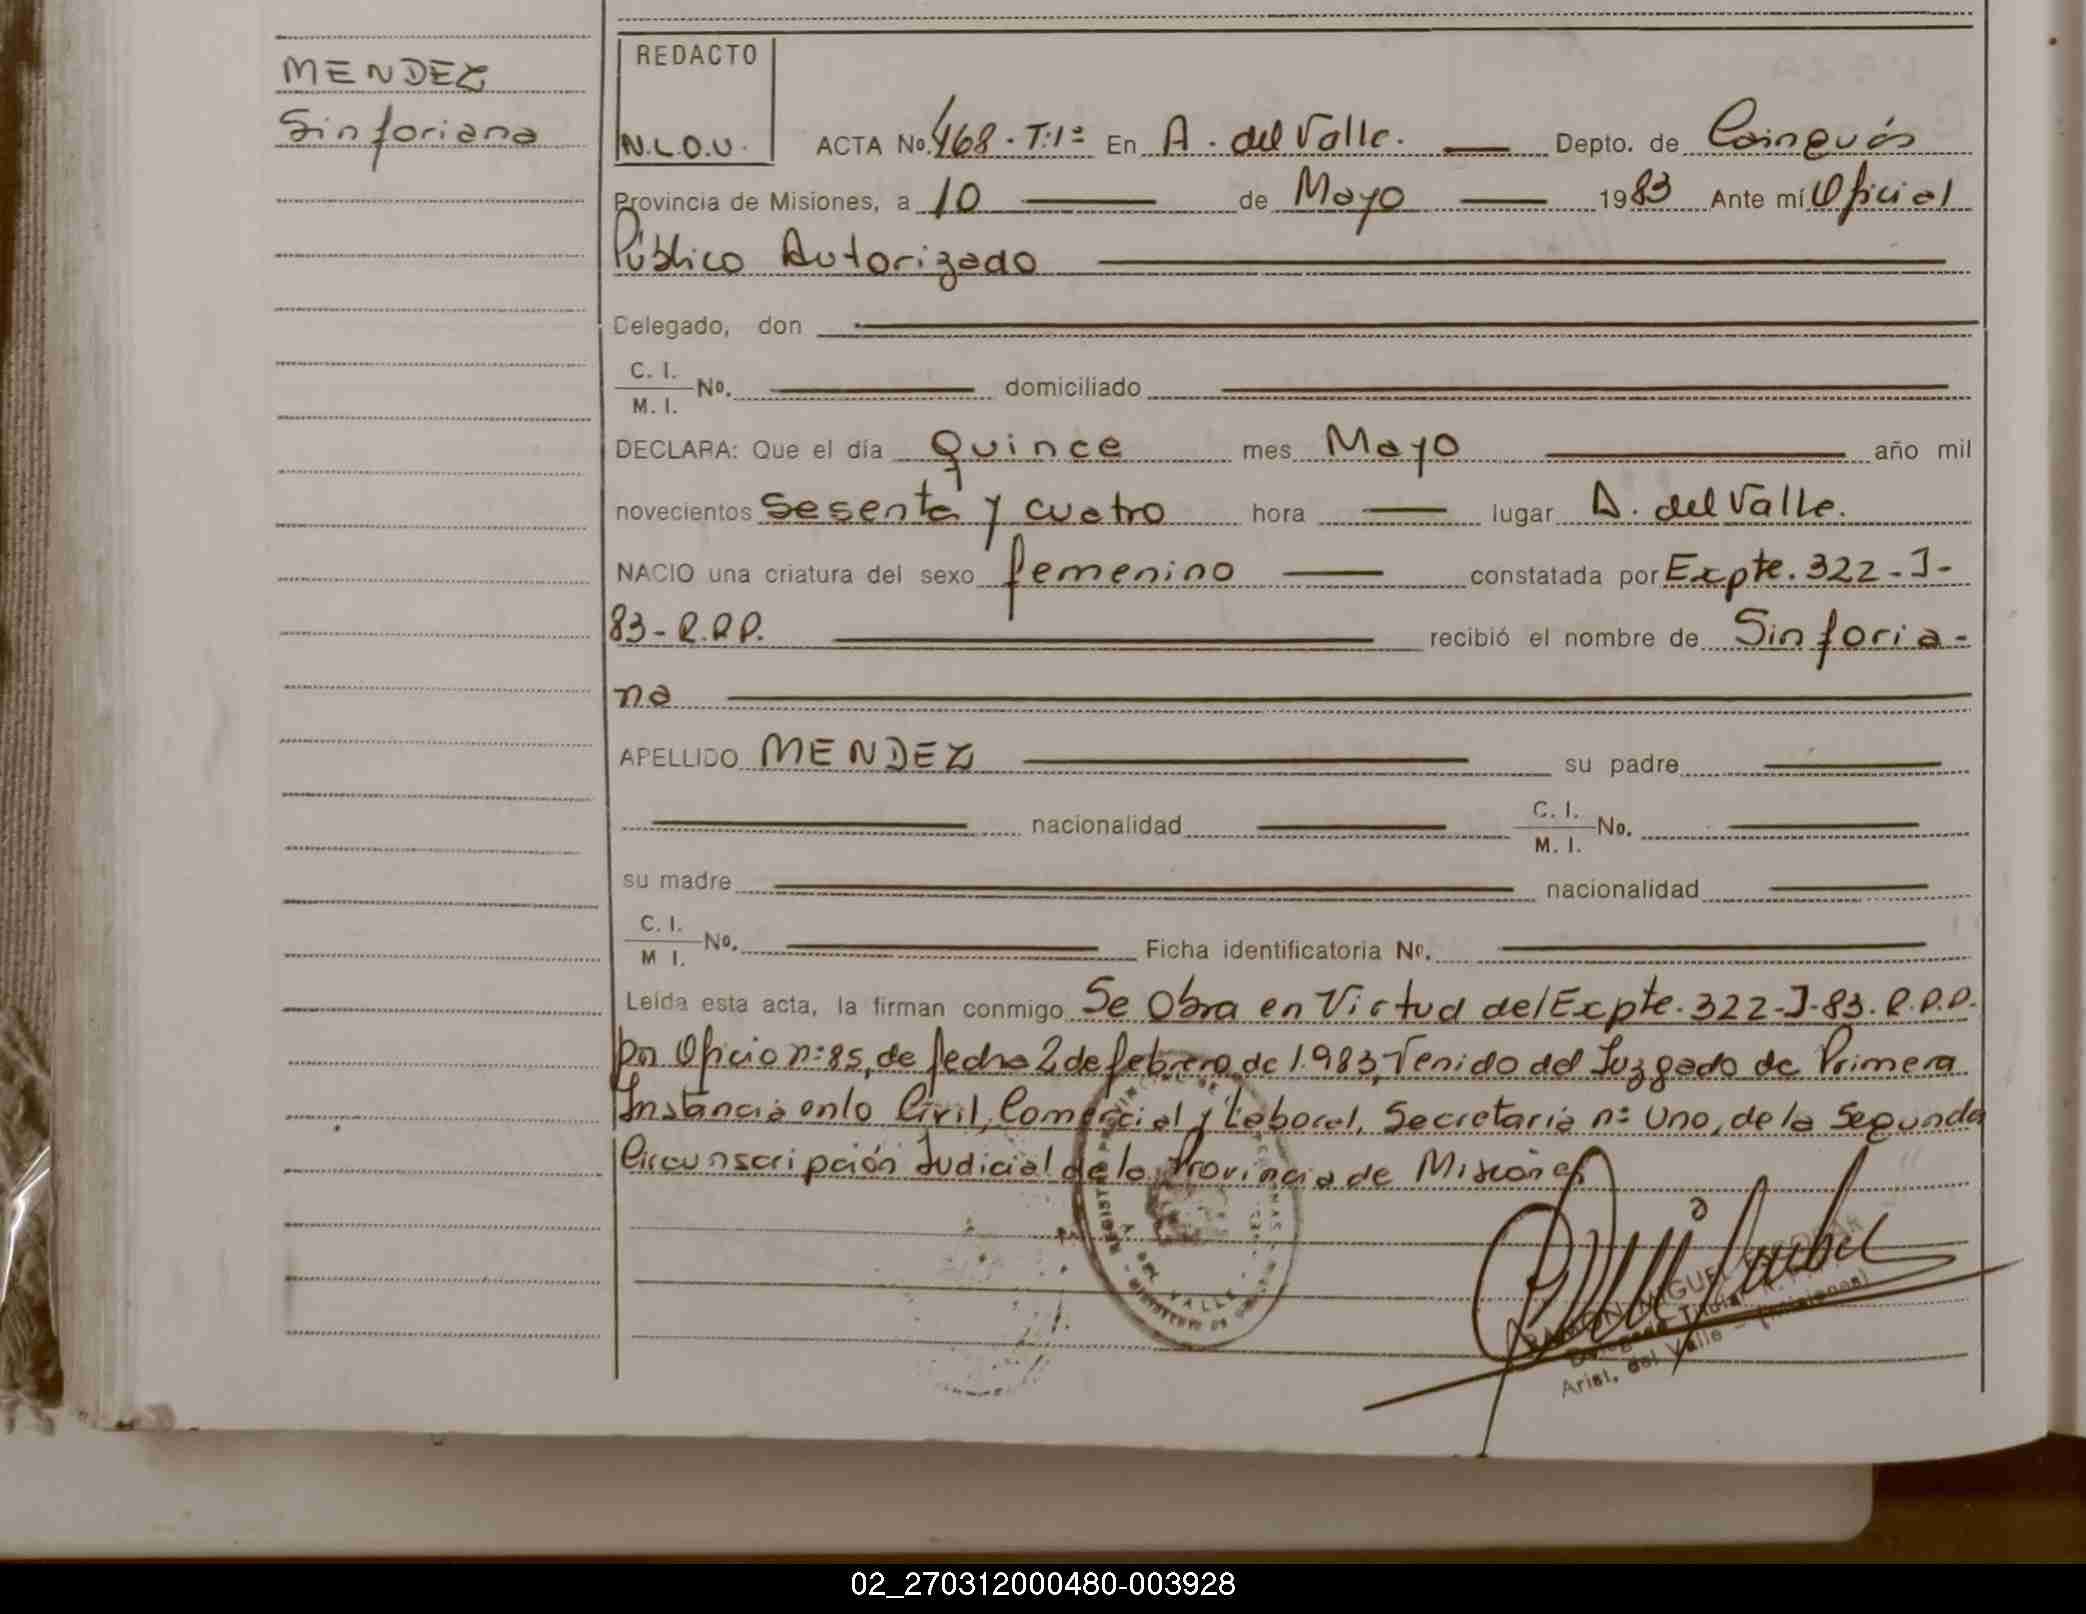 MENDEZ
Sinforiana
REDACTO
N.L.O.U.
ACTA No. 468 - T:1º En A. del Valle. Depto. de Cainguás
Provincia de Misiones, a 10 de Mayo 1983 Ante mí Oficial
Público Autorizado
Delegado, don
C. I.
M. I. No. domiciliado
DECLARA: Que el día quince mes Mayo año mil
novecientos sesenta y cuatro hora lugar A. del Valle.
NACIO una criatura del sexo femenino constatada por Expte. 322-J-
83-R.P.P. recibió el nombre de Sinforia-
na
APELLIDO MENDEZ su padre
nacionalidad C. I.
M. I. No.
su madre nacionalidad
C. I.
M I. No. Ficha identificatoria No.
Leída esta acta, la firman conmigo Se Obra en Virtud del Expte. 322-J-83. R.P.P.
por Oficio nº 85, de fecha 2 de febrero de 1.983, Venido del Juzgado de Primera
Instancia en lo Civil, Comercial y Laboral, Secretaria nº Uno, de la Segunda
Circunscripción Judicial de la Provincia de Misiones
VALLE
RAMON MIGUEL ESCOBAR
Delegado Titular
Arist. del Valle - (Misiones)
02_270312000480-003928